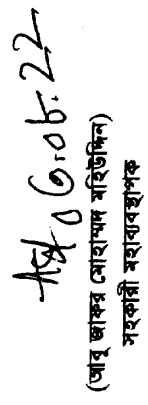 (আবু জাফর মোহাম্মদ মহিউদ্দিন)
সহকারী মহাব্যবস্থাপক